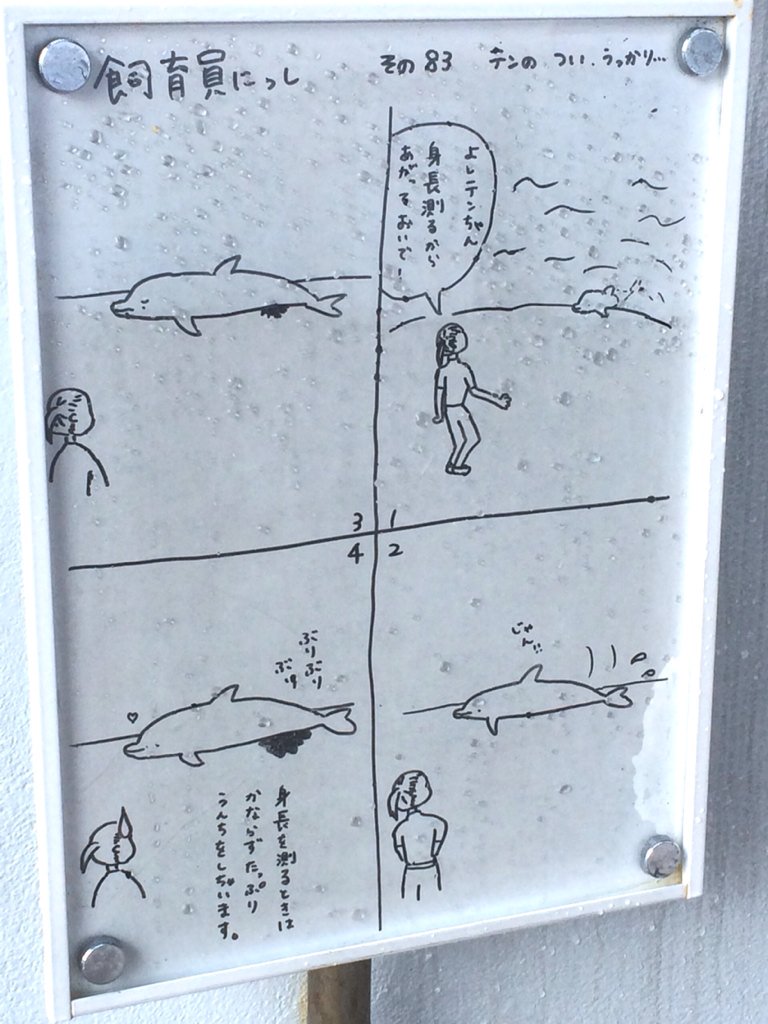 飼育員にっし
その83 テンの つい、うっかり…
よしテンちゃん
身長測るから
あがっておいで!
1
2
じゃん!!
3
4
ぶりぶり
ぶり
身長を測るときは
かならずたっぷり
うんちをしちゃいます。